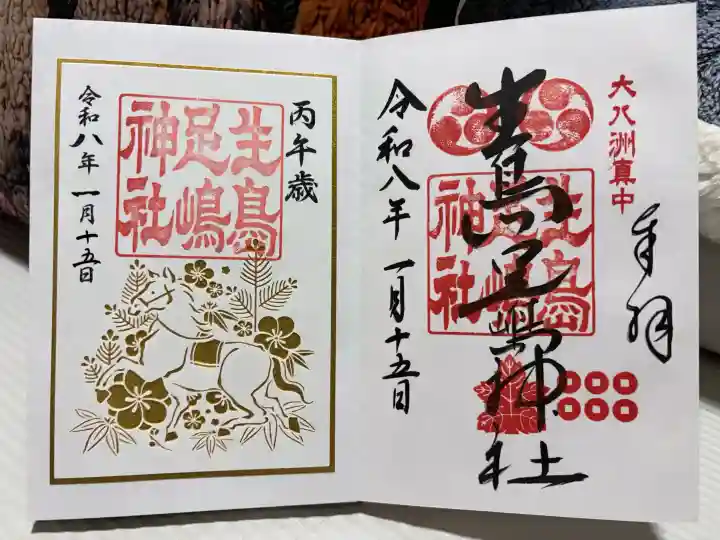 大八洲真中
奉拝
生島足嶋神社
生島
足嶋
神社
令和八年 一月十五日
丙午歳
生島
足嶋
神社
令和八年 一月十五日